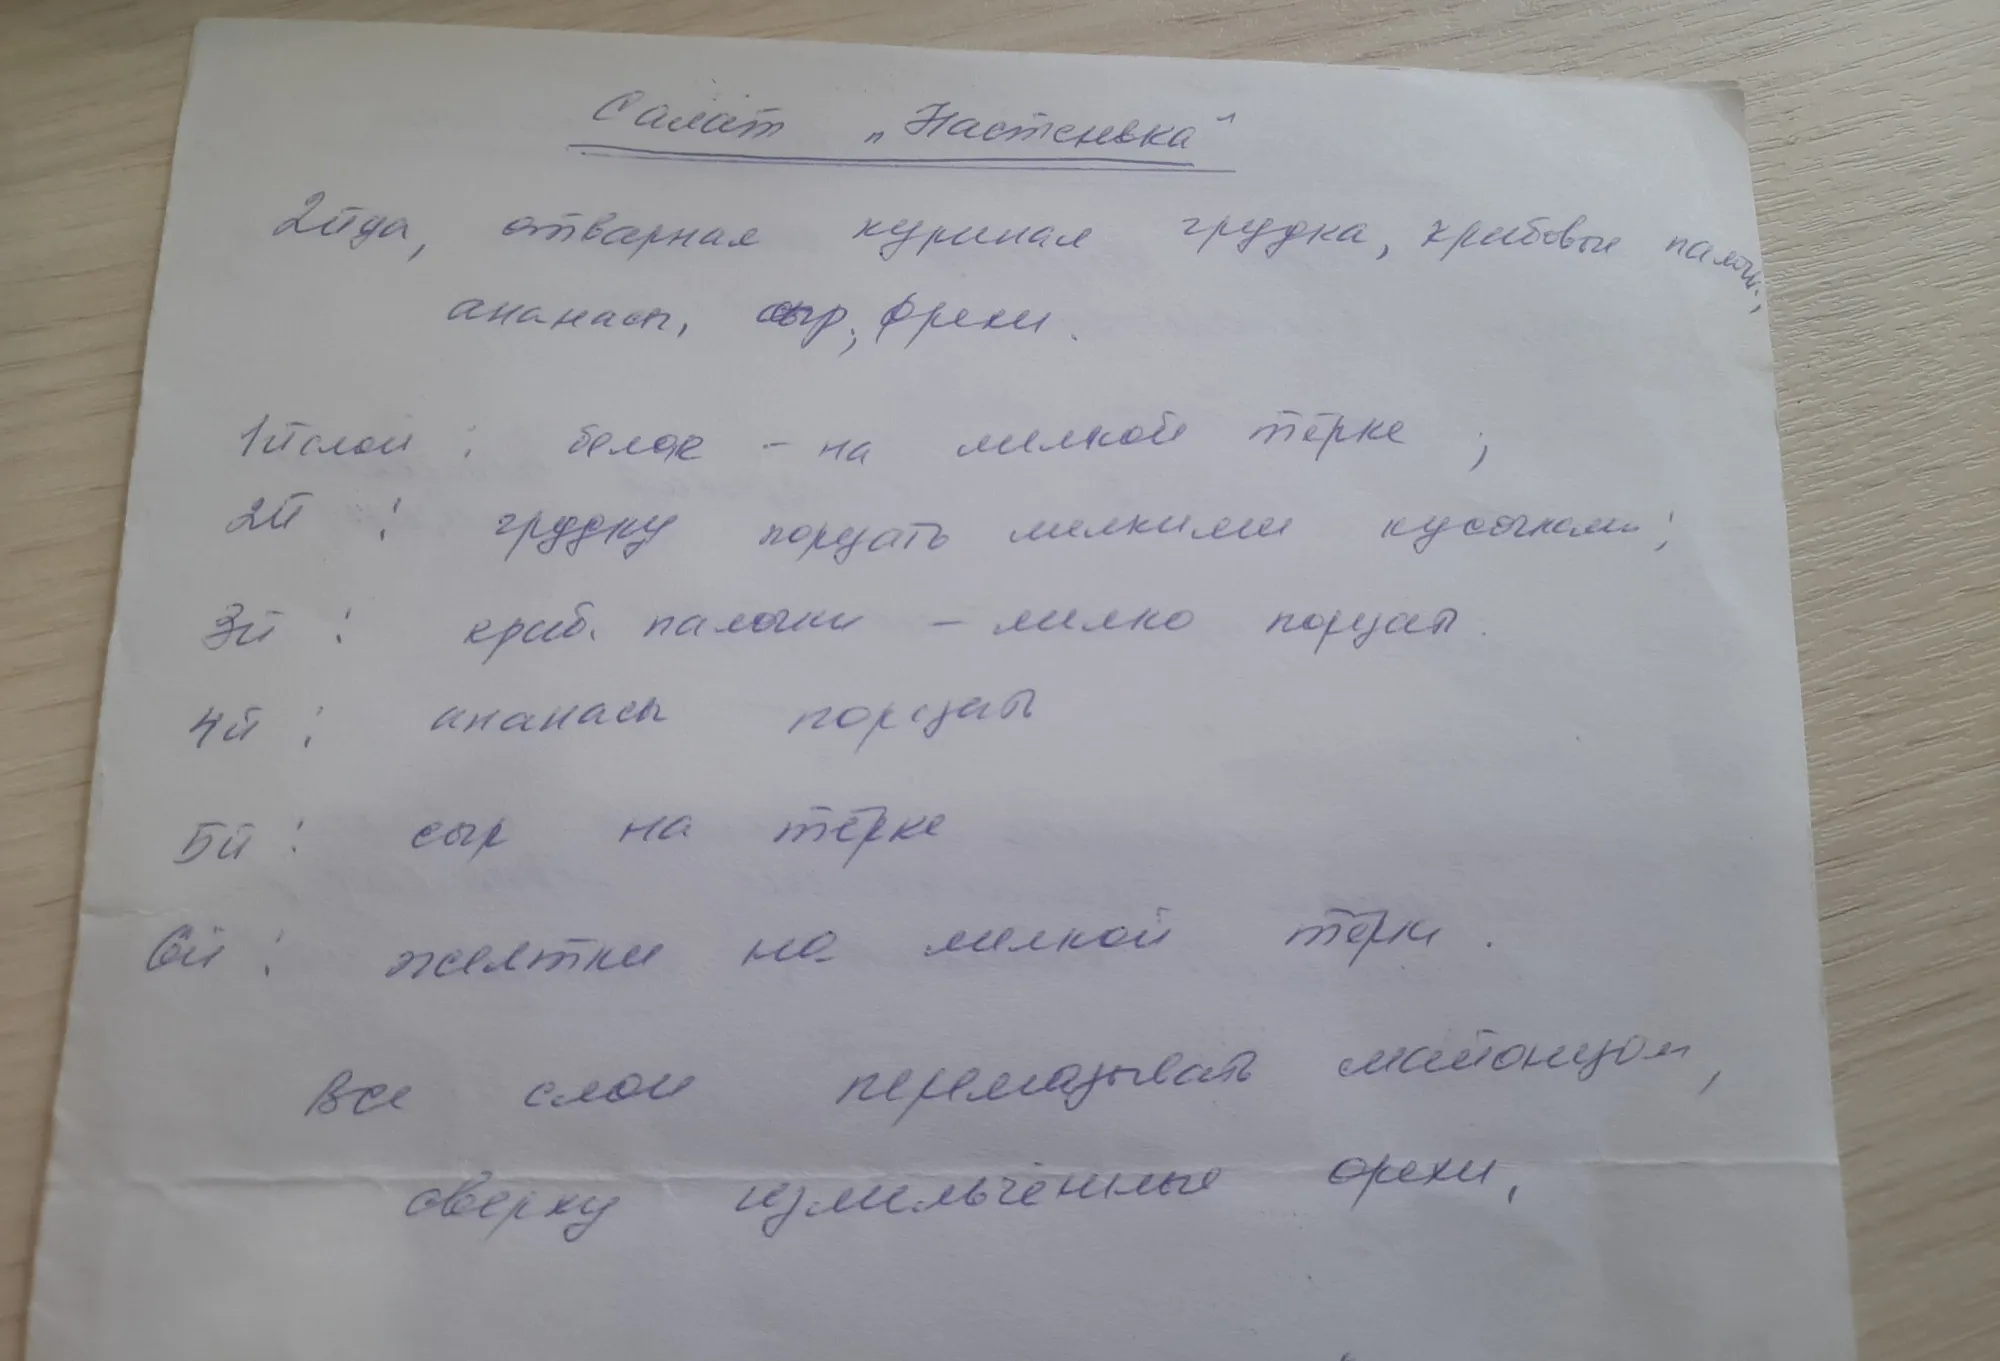 Салат „Настенька“
Яйца, отварная куриная грудка, крабовые палочки,
ананасы, сыр, орехи.
1й слой : белок - на мелкой тёрке ;
2й : грудку порезать мелкими кусочками ;
3й : краб. палочки - мелко порезать.
4й : ананасы порезать
5й : сыр на тёрке
6й : желтки на мелкой тёрке.
Все слои перемазывать майонезом,
сверху измельчённые орехи,